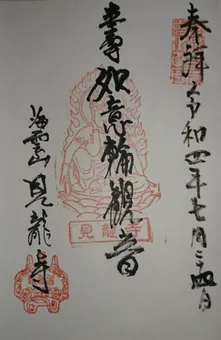 奉拝 令和四年七月二十四日
本尊
如意輪觀音
見龍寺
海雲山 見龍寺